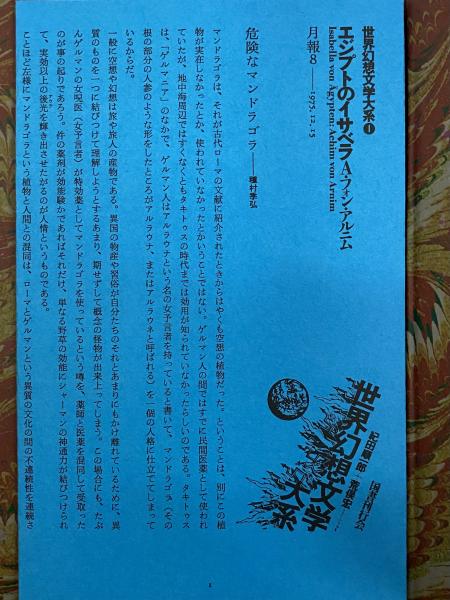 世界幻想文学大系❶
エジプトのイサベラ A・フォン・アルニム
Isabella von Ägypten: Achim von Arnim
月報8——1975.12.15
世界幻想文学大系
紀田順一郎
荒俣宏
国書刊行会
危険なマンドラゴラ——種村季弘
マンドラゴラは、それが古代ローマの文献に紹介されたときからはやくも空想の植物だった。ということは、別にこの植
物が実在しなかったとか、使われていなかったとかいうことではない。ゲルマン人の間ではすでに民間医薬として使われ
ていたが、地中海周辺ではすくなくともタキトゥスの時代までは効用が知られていなかったらしいのである。タキトゥス
は、『ゲルマニア』のなかで、ゲルマン人はアルラウナという名の女予言者を持っていると書いて、マンドラゴラ(その
根の部分の人参のような形をしたところがアルラウナ、またはアルラウネと呼ばれる)を一個の人格に仕立ててしまって
いるからだ。
一般に空想や幻想は旅や旅人の産物である。異国の物産や習俗が自分たちのそれとあまりにもかけ離れているために、異
質のものを一つに結びつけて理解しようとするあまり、期せずして概念の怪物が出来上ってしまう。この場合にも、たぶ
んゲルマンの女呪医(女予言者)が特効薬としてマンドラゴラを使っているという噂を、薬師と医薬を混同して受取った
のが事の起りであろう。件の薬剤が効能験かであればそれだけ、単なる野草の効能にシャーマンの神通力が結びつけられ
て、実効以上の後光を輝き出させたがるのが人情というものである。
ことほど左様にマンドラゴラという植物と人間との混同は、ローマとゲルマンという異質の文化の間の不連続性を連続さ
1